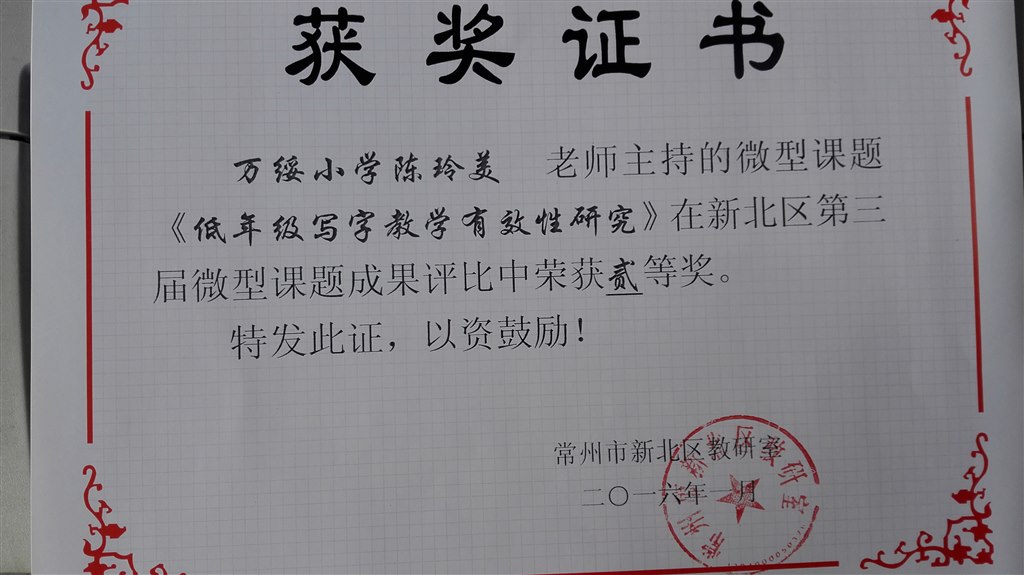 获奖证书
万绥小学陈玲美 老师主持的微型课题
《低年级写字教学有效性研究》在新北区第三
届微型课题成果评比中荣获贰等奖。
特发此证，以资鼓励！
常州市新北区教研室
二〇一六年一月
常州市新北区教研室